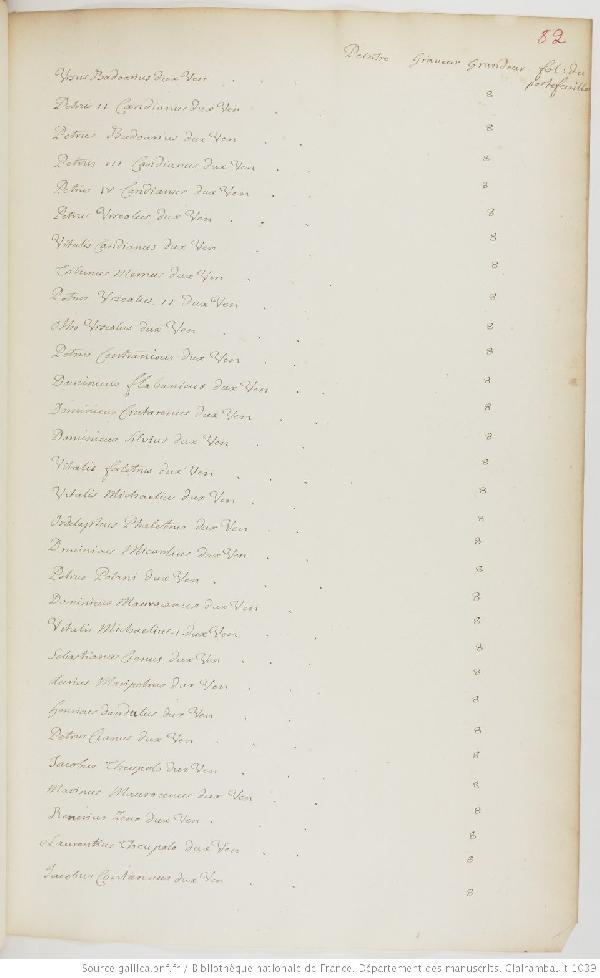 82
Peintre Graveur Grandeur fol: du
portefeuille
Ursus Badoarius dux Ven 8
Petrus II Candianus dux Ven 8
Petrus Badoarius dux Ven 8
Petrus III Candianus dux Ven 8
Petrus IV Candianus dux Ven 8
Petrus Urseolus dux Ven 8
Vitalis Candianus dux Ven 8
Tribunus Memus dux Ven 8
Petrus Urseolus II dux Ven 8
Otho Urseolus dux Ven 8
Petrus Centranicus dux Ven 8
Dominicus flabanicus dux Ven 8
Dominicus Contarenus dux Ven 8
Dominicus Silvius dux Ven 8
Vitalis faletrus dux Ven 8
Vitalis Michaelius dux Ven 8
Ordelaphus Phaletrus dux Ven 8
Dominicus Michaelius dux Ven 8
Petrus Polani dux Ven 8
Dominicus Maurocenus dux Ven 8
Vitalis Michaelius II dux Ven 8
Sebastianus Cianus dux Ven 8
Aurius Maripetrus dux Ven 8
henricus dandulus dux Ven 8
Petrus Cianus dux Ven 8
Jacobus Theupolo dux Ven 8
Marinus Maurocenus dux Ven 8
Renerius Zeno dux Ven 8
Laurentius Theupolo dux Ven 8
Jacobus Contarenus dux Ven 8
Source gallica.bnf.fr / Bibliothèque nationale de France. Département des manuscrits. Clairambault 1039